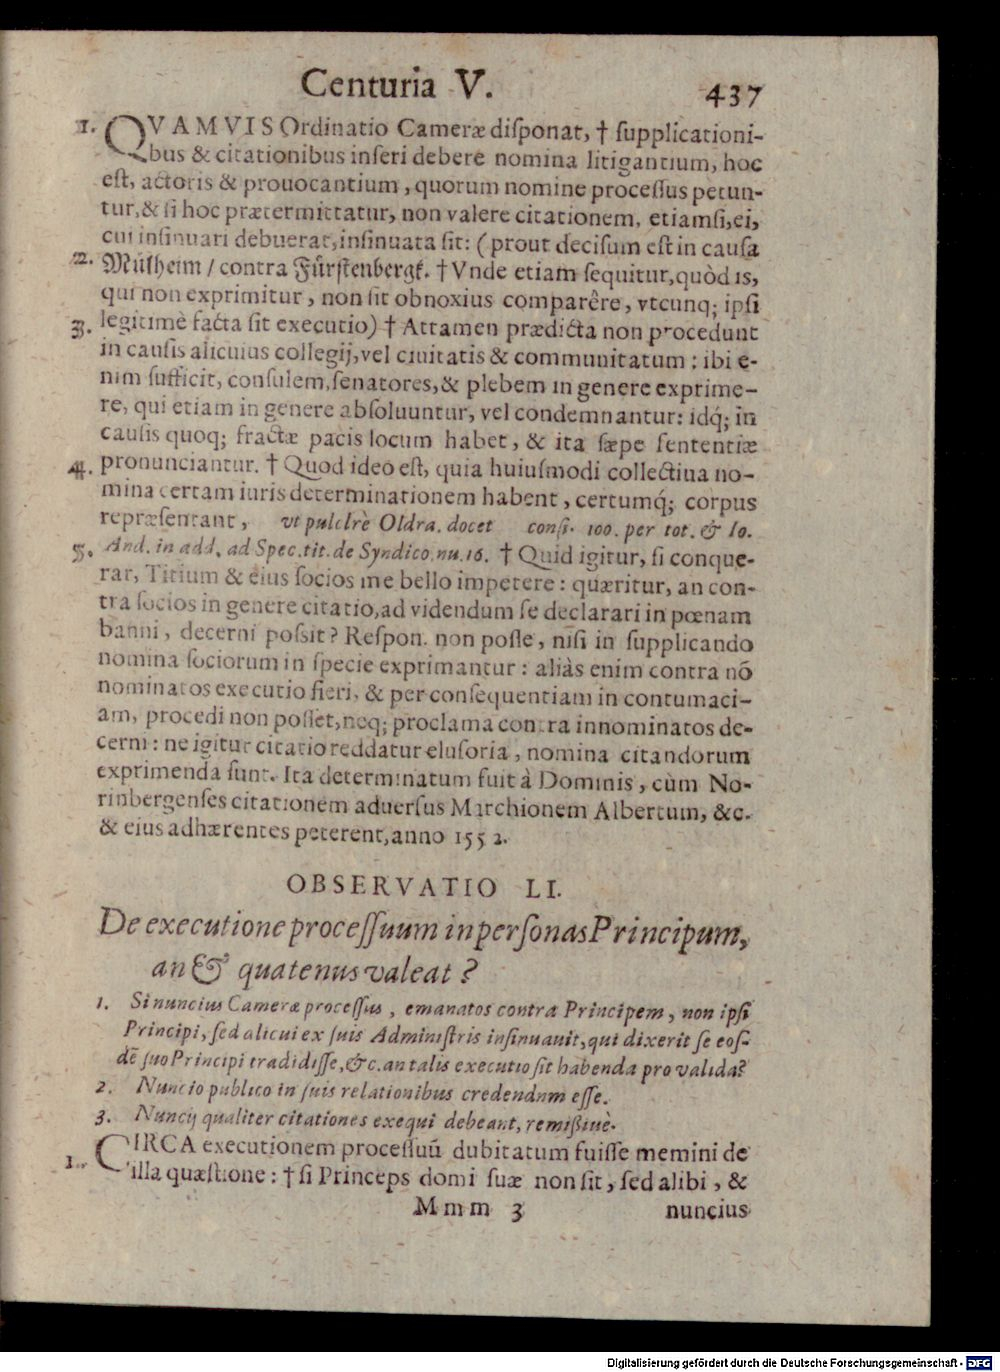 Centuria V. 437
1. QVAMVIS Ordinatio Cameræ disponat, † supplicationi-
bus & citationibus inseri debere nomina litigantium, hoc
est, actoris & prouocantium, quorum nomine processus petun-
tur, & si hoc prætermittatur, non valere citationem, etiamsi, ei,
cui insinuari debuerat, insinuata sit: (prout decisum est in causa
2. Mülheim / contra Fürstenbergk. † Vnde etiam sequitur, quòd is,
qui non exprimitur, non sit obnoxius comparêre, vtcunq; ipsi
3. legitimè facta sit executio) † Attamen prædicta non procedunt
in causis alicuius collegij, vel ciuitatis & communitatum: ibi e-
nim sufficit, consulem, senatores, & plebem in genere exprime-
re, qui etiam in genere absoluuntur, vel condemnantur: idq́; in
causis quoq; fractæ pacis locum habet, & ita sæpe sententiæ
4. pronunciantur. † Quod ideo est, quia huiusmodi collectiua no-
mina certam iuris determinationem habent, certumq́; corpus
repræsentant, vt pulclrè Oldra. docet consi. 100. per tot. & Io.
5. And. in add. ad Spec. tit. de Syndico. nu. 16. † Quid igitur, si conque-
rar, Titium & eius socios me bello impetere: quæritur, an con-
tra socios in genere citatio, ad videndum se declarari in pœnam
banni, decerni possit? Respon. non posse, nisi in supplicando
nomina sociorum in specie exprimantur: aliàs enim contra nõ
nominatos executio fieri, & per consequentiam in contumaci-
am, procedi non posset, neq; proclama contra innominatos de-
cerni: ne igitur citatio reddatur elusoria, nomina citandorum
exprimenda sunt. Ita determinatum fuit à Dominis, cùm No-
rinbergenses citationem aduersus Marchionem Albertum, &c.
& eius adhærentes peterent, anno 1552.
OBSERVATIO LI.
De executione processuum in personas Principum,
an & quatenus valeat?
1. Si nuncius Cameræ processus, emanatos contra Principem, non ipsi
Principi, sed alicui ex suis Administris insinuauit, qui dixerit se eos-
dẽ suo Principi tradidisse, &c. an talis executio sit habenda pro valida?
2. Nuncio publico in suis relationibus credendnm esse.
3. Nuncij qualiter citationes exequi debeant, remißiuè.
1. CIRCA executionem processuũ dubitatum fuisse memini de
illa quæstione: † si Princeps domi suæ non sit, sed alibi, &
Mmm 3 nuncius
Digitalisierung gefördert durch die Deutsche Forschungsgemeinschaft - DFG